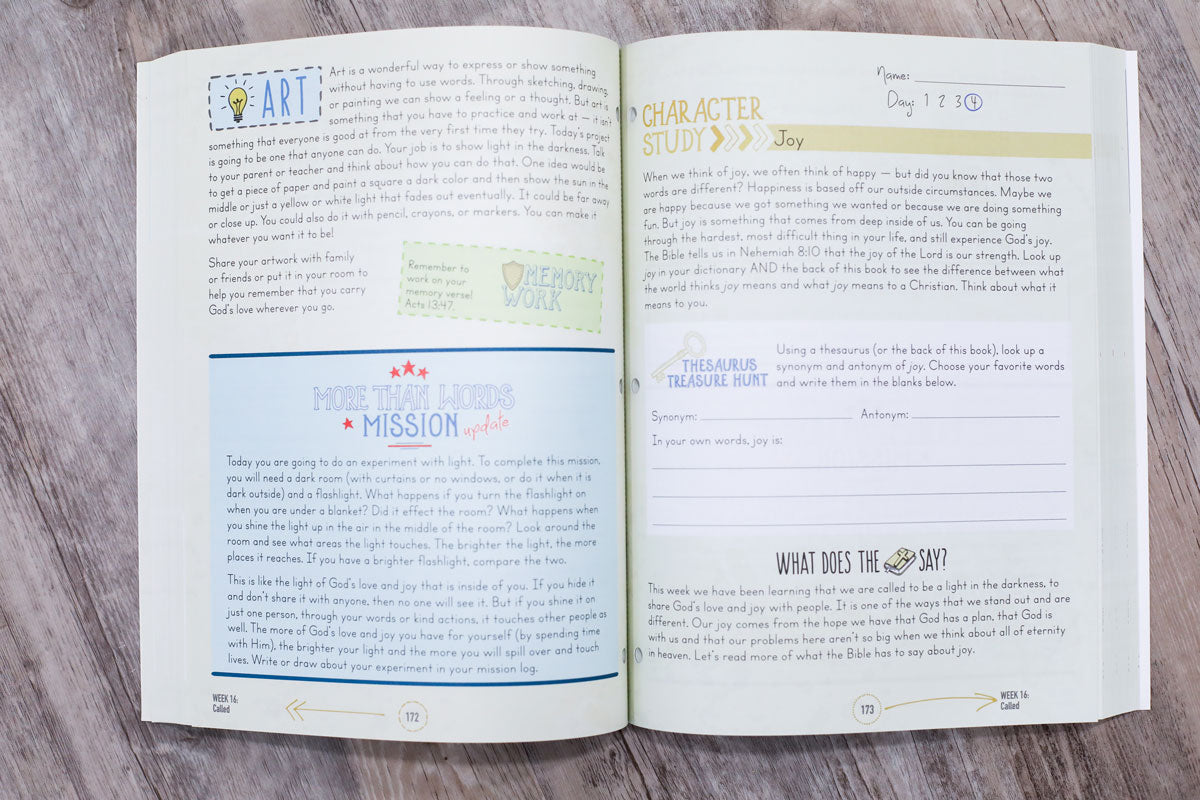 ART
Art is a wonderful way to express or show something
without having to use words. Through sketching, drawing,
or painting we can show a feeling or a thought. But art is
something that you have to practice and work at — it isn't
something that everyone is good at from the very first time they try. Today's project
is going to be one that anyone can do. Your job is to show light in the darkness. Talk
to your parent or teacher and think about how you can do that. One idea would be
to get a piece of paper and paint a square a dark color and then show the sun in the
middle or just a yellow or white light that fades out eventually. It could be far away
or close up. You could also do it with pencil, crayons, or markers. You can make it
whatever you want it to be!
Share your artwork with family
or friends or put it in your room to
help you remember that you carry
God's love wherever you go.
Remember to
work on your
memory verse!
Acts 13:47.
MEMORY
WORK
MORE THAN WORDS
MISSION update
Today you are going to do an experiment with light. To complete this mission,
you will need a dark room (with curtains or no windows, or do it when it is
dark outside) and a flashlight. What happens if you turn the flashlight on
when you are under a blanket? Did it effect the room? What happens when
you shine the light up in the air in the middle of the room? Look around the
room and see what areas the light touches. The brighter the light, the more
places it reaches. If you have a brighter flashlight, compare the two.
This is like the light of God's love and joy that is inside of you. If you hide it
and don't share it with anyone, then no one will see it. But if you shine it on
just one person, through your words or kind actions, it touches other people as
well. The more of God's love and joy you have for yourself (by spending time
with Him), the brighter your light and the more you will spill over and touch
lives. Write or draw about your experiment in your mission log.
WEEK 16:
Called
172
Name:
Day: 1 2 3 4
CHARACTER
STUDY Joy
When we think of joy, we often think of happy — but did you know that those two
words are different? Happiness is based off our outside circumstances. Maybe we
are happy because we got something we wanted or because we are doing something
fun. But joy is something that comes from deep inside of us. You can be going
through the hardest, most difficult thing in your life, and still experience God's joy.
The Bible tells us in Nehemiah 8:10 that the joy of the Lord is our strength. Look up
joy in your dictionary AND the back of this book to see the difference between what
the world thinks joy means and what joy means to a Christian. Think about what it
means to you.
THESAURUS
TREASURE HUNT
Using a thesaurus (or the back of this book), look up a
synonym and antonym of joy. Choose your favorite words
and write them in the blanks below.
Synonym: Antonym:
In your own words, joy is:
WHAT DOES THE SAY?
This week we have been learning that we are called to be a light in the darkness, to
share God's love and joy with people. It is one of the ways that we stand out and are
different. Our joy comes from the hope we have that God has a plan, that God is
with us and that our problems here aren't so big when we think about all of eternity
in heaven. Let's read more of what the Bible has to say about joy.
173
WEEK 16:
Called